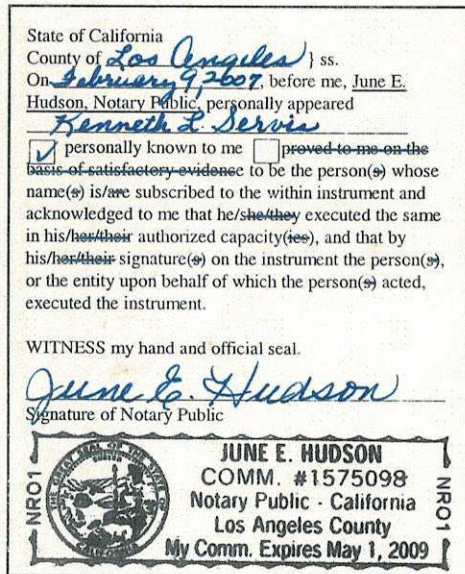 State of California
County of Los Angeles } ss.
On February 9, 2007, before me, June E.
Hudson, Notary Public, personally appeared
Kenneth L. Servis
✓ personally known to me ☐ proved to me on the
basis of satisfactory evidence to be the person(s) whose
name(s) is/are subscribed to the within instrument and
acknowledged to me that he/she/they executed the same
in his/her/their authorized capacity(ies), and that by
his/her/their signature(s) on the instrument the person(s),
or the entity upon behalf of which the person(s) acted,
executed the instrument.
WITNESS my hand and official seal.
June E. Hudson
Signature of Notary Public
NRO1
THE GREAT SEAL OF THE STATE OF CALIFORNIA
EUREKA
JUNE E. HUDSON
COMM. #1575098
Notary Public - California
Los Angeles County
My Comm. Expires May 1, 2009
NRO1